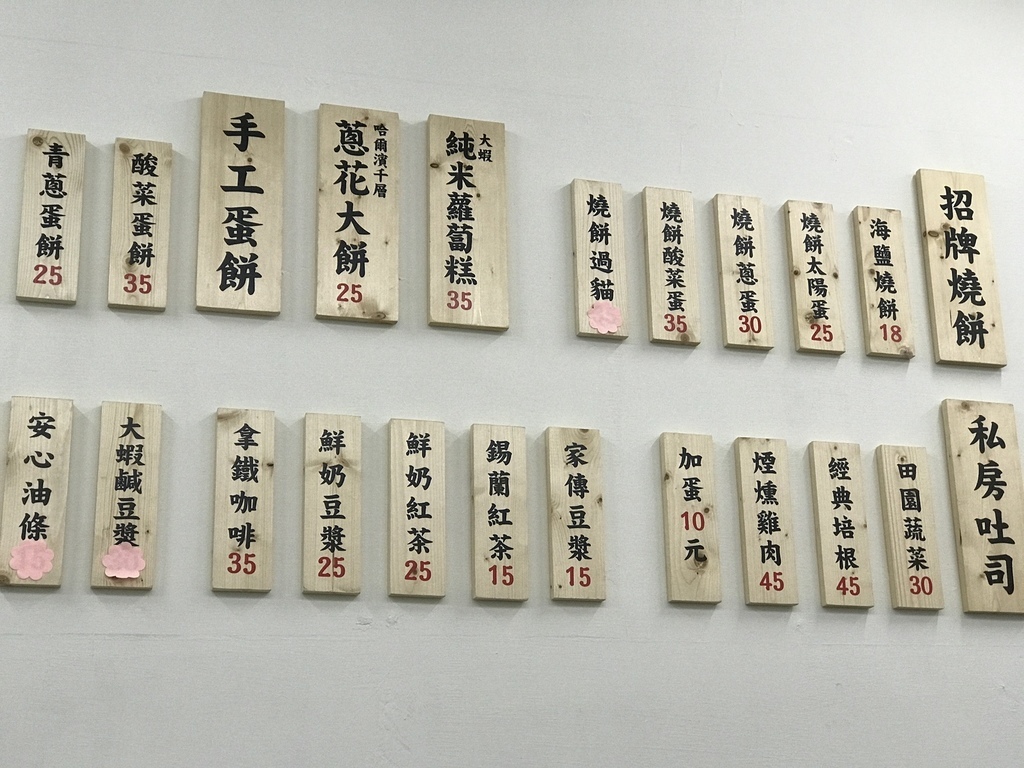 招牌燒餅
海鹽燒餅 18
燒餅太陽蛋 25
燒餅蔥蛋 30
燒餅酸菜蛋 35
燒餅過貓
大蝦
純米蘿蔔糕 35
哈爾濱千層
蔥花大餅 25
手工蛋餅
酸菜蛋餅 35
青蔥蛋餅 25
私房吐司
田園蔬菜 30
經典培根 45
煙燻雞肉 45
加蛋10元
家傳豆漿 15
錫蘭紅茶 15
鮮奶紅茶 25
鮮奶豆漿 25
拿鐵咖啡 35
大蝦鹹豆漿
安心油條